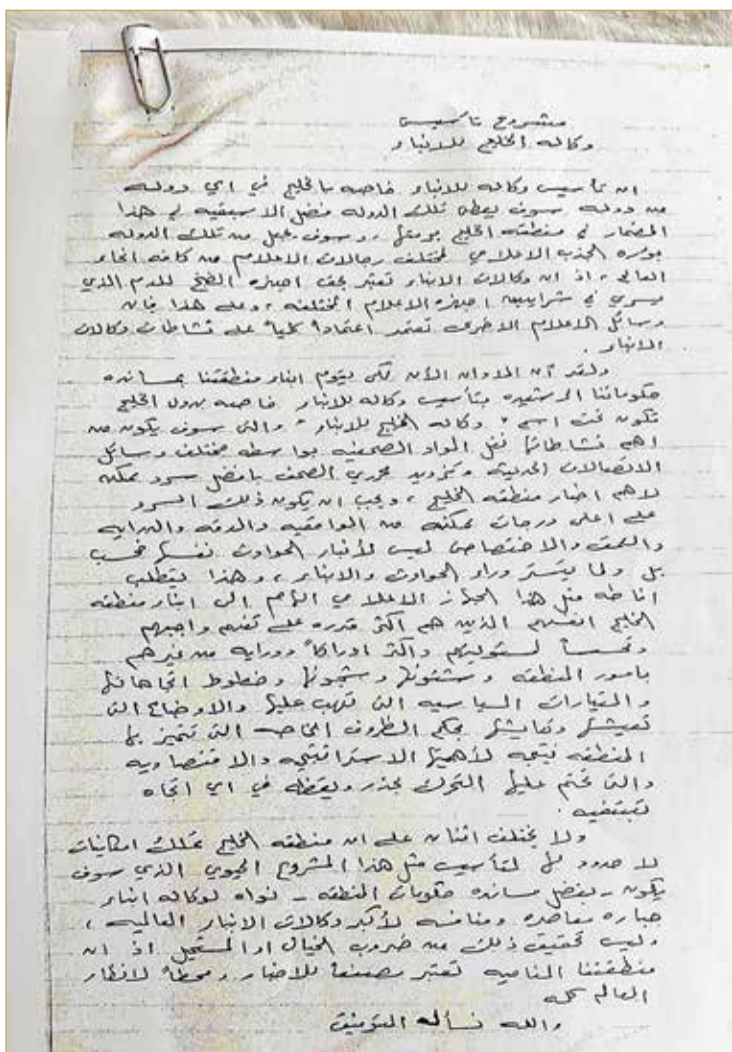 مشروع تأسيس
وكاله الخليج للانباء
ان تأسيس وكاله للانباء خاصه بالخليج في اي دوله
من دوله سوف يعطى تلك الدوله فضل الاسبقيه في هذا
المضمار في منطقه الخليج برمتها، وسوف يجعل من تلك الدوله
بؤره الجذب الاعلامي لمختلف رجالات الاعلام من كافه انحاء
العالم، اذ ان وكالات الانباء تعتبر بحق اجهزه الضخ للدم الذي
يسري في شرايين اجهزه الاعلام المختلفه، وعلى هذا فان
وسائل الاعلام الاخرى تعتمد اعتماداً كلياً على نشاطات وكالات
الانباء.
ولقد آن الاوان الآن لكي يقوم ابناء منطقتنا بمسانده
حكوماتنا الرشيده بتأسيس وكاله للانباء خاصه بدول الخليج
تكون تحت اسم " وكاله الخليج للانباء " والتى سوف يكون من
اهم نشاطاتها نقل المواد الصحفيه بواسطه مختلف وسائل
الاتصالات الحديثه وتزويد محرري الصحف بافضل سرد ممكن
لاهم اخبار منطقه الخليج، ويجب ان يكون ذلك السرد
على اعلى درجات ممكنه من الواقعيه والدقه والدرايه
والعمق والاختصاص ليس لأنباء الحوادث نفسها فحسب
بل ولما يتستر وراء الحوادث والانباء، وهذا يتطلب
اناطه مثل هذا الجهاز الاعلامي الهام الى ابناء منطقه
الخليج انفسهم الذين هم اكثر قدره على تفهم واجبهم
وتحسساً لمسئوليتهم واكثر ادراكاً ودرايه من غيرهم
بامور المنطقه وشئونها وشجونها وخطوط اتجاهاتها
والتيارات السياسيه التى تهب عليها والاوضاع التى
تعيشها وتعايشها بحكم الظروف الخاصه التى تتميز بها
المنطقه نتيجه لأهميتها الاستراتيجيه والاقتصاديه
والتى تحتم عليها التحرك بحذر ويقظه في اي اتجاه
تبتغيه.
ولا يختلف اثنان على ان منطقه الخليج تملك امكانيات
لا حدود لها لتأسيس مثل هذا المشروع الحيوي الذي سوف
يكون - بفضل مسانده حكومات المنطقه - نواه لوكاله انباء
جباره معاصره ومنافسه لأكبر وكالات الانباء العالميه،
وليس تحقيق ذلك من ضروب الخيال او المستحيل اذ ان
منطقتنا الناميه تعتبر مصنعاً للاخبار ومحطاً لانظار
العالم كله
والله نسأله التوفيق